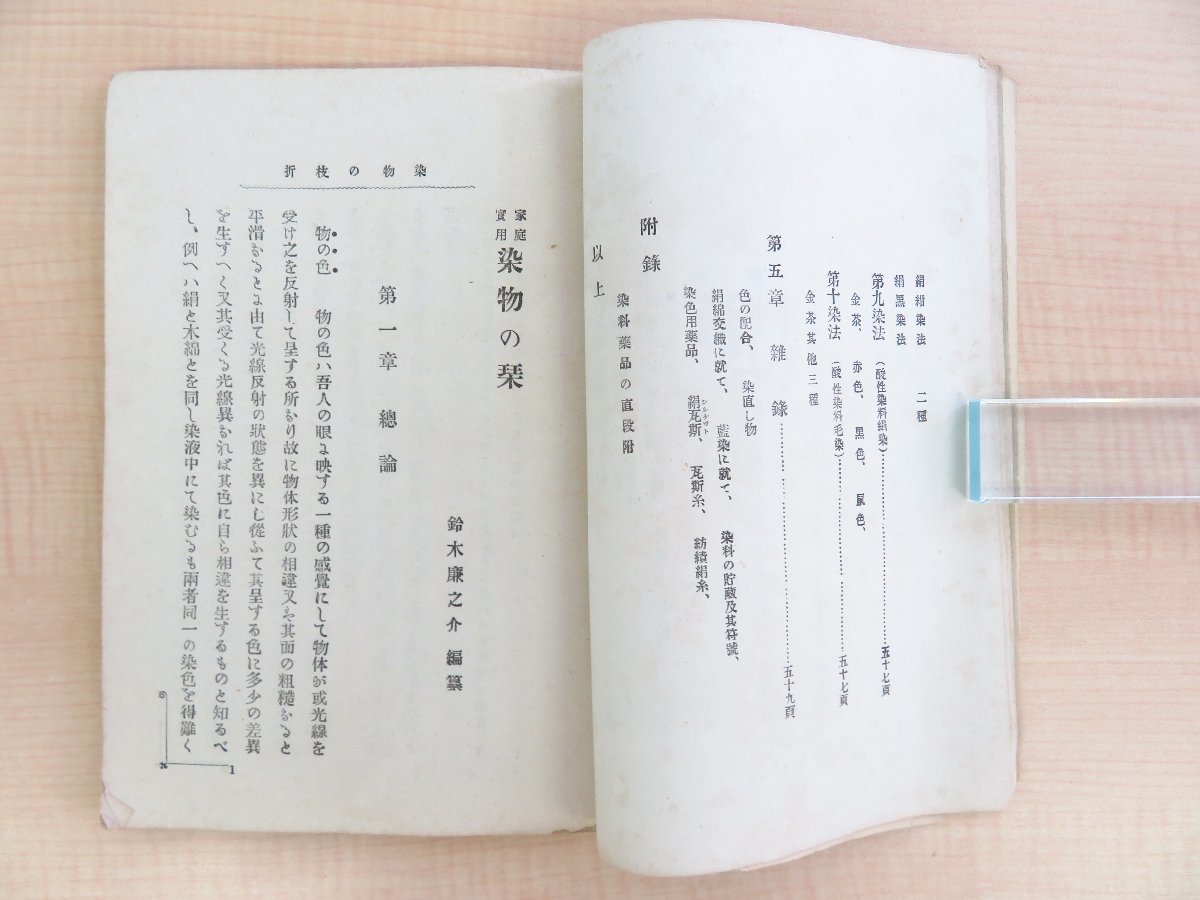 絹紺染法　二種
絹黒染法
第九染法（酸性染料絹染）……五十七頁
金茶、赤色、黒色、鼠色、
第十染法（酸性染料毛染）……五十七頁
金茶其他三種
第五章　雜　錄……五十九頁
色の配合、染直し物
絹綿交織に就て、藍染に就て、染料の貯藏及其符號、
染色用藥品、絹瓦斯、瓦斯糸、紡績絹糸、
附　錄
染料藥品の直段附
以　上
染物の枝折
家庭實用 染物の栞
鈴木廉之介編纂
第一章　總論
物の色　物の色ハ吾人の眼よ映する一種の感覺にして物体が或光線を
受け之を反射して呈する所なり故に物体形狀の相違又は其面の粗糙なると
平滑なるとよ由て光線反射の狀態を異にし從ふて其呈する色に多少の差異
を生すへく又其受くる光線異なれば其色に自ら相違を生するものと知るべ
し、例へハ絹と木綿とを同し染液中にて染むるも兩者同一の染色を得難く
1